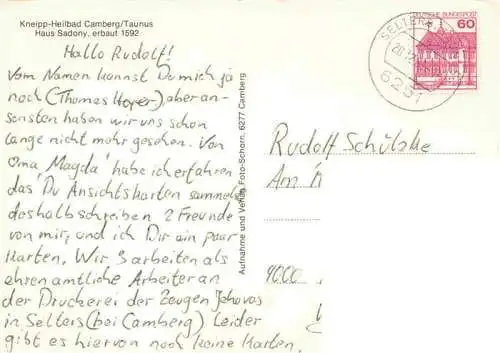 Kneipp-Heilbad Camberg/Taunus
Haus Sadony, erbaut 1592
Hallo Rudolf!
Vom Namen kannst Du mich ja
noch (Thomas Hoyer), aber an-
sonsten haben wir uns schon
lange nicht mehr gesehen. Von
"Oma Magda" habe ich erfahren
das Du Ansichtskarten sammelst
deshalb schreiben 2 Freunde
von mir, und ich Dir ein paar
Karten. Wir 3 arbeiten als
ehrenamtliche Arbeiter an
der Druckerei der Zeugen Jehovas
in Selters (bei Camberg) Leider
gibt es hiervon noch keine Karten.
Aufnahme und Verlag Foto-Schorn, 6277 Camberg
SELTERS
6251
DEUTSCHE BUNDESPOST
60
Rudolf Schülzke
Am
4000